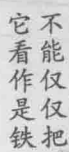 不能仅仅把
它看作是铁